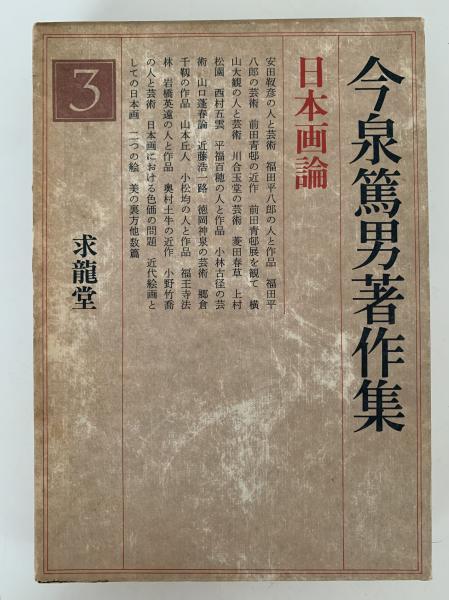 今泉篤男著作集
日本画論
安田靫彦の人と芸術　福田平八郎の人と作品　福田平
八郎の芸術　前田青邨の近作　前田青邨展を観て　横
山大観の人と芸術　川合玉堂の芸術　菱田春草　上村
松園　西村五雲　平福百穂の人と作品　小林古径の芸
術　山口蓬春論　近藤浩一路　徳岡神泉の芸術　郷倉
千靱の作品　山本丘人　小松均の人と作品　福王寺法
林　岩橋英遠の人と作品　奥村土牛の近作　小野竹喬
の人と芸術　日本画における色価の問題　近代絵画と
しての日本画　二つの絵　美の裏方他数篇
3
求龍堂